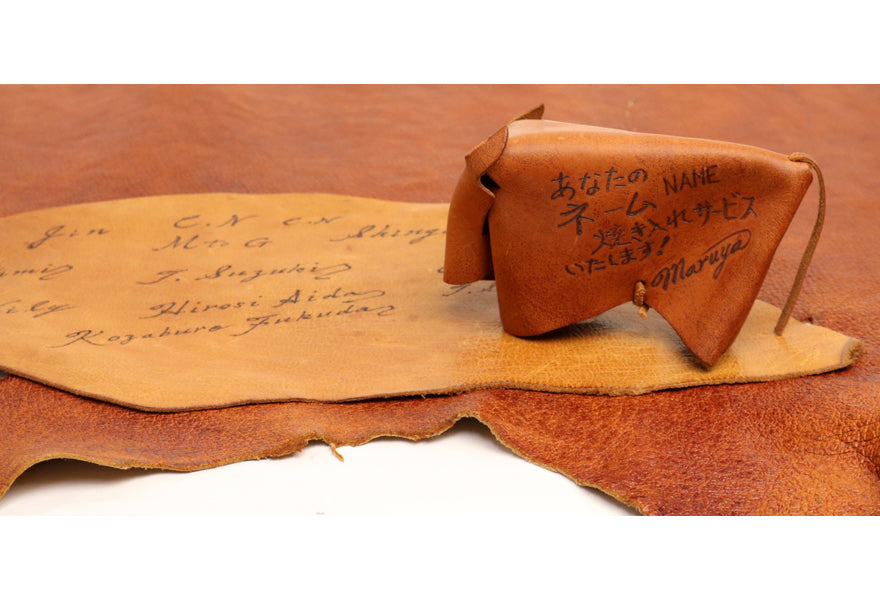 Jin
C.N C.N
M to G
T. Suzuki
Hirosi Aida
Kozaburo Fukuda
あなたの
NAME
ネーム
焼き入れサービス
いたします!
Maruya